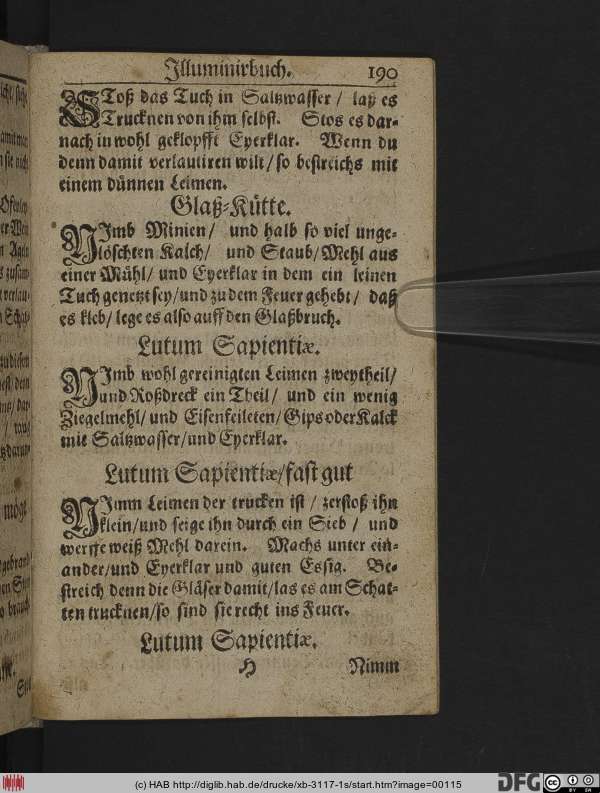 Illuminirbuch. 190
SToß das Tuch in Saltzwasser / laß es
Trucknen von ihm selbst. Stos es dar-
nach in wohl geklopfft Eyerklar. Wenn du
denn damit verlautiren wilt / so bestreichs mit
einem dünnen Leimen.
Glaß-Kütte.
NImb Minien / und halb so viel unge-
löschten Kalch / und Staub / Mehl aus
einer Mühl / und Eyerklar in dem ein leinen
Tuch genetzt sey / und zu dem Feuer gehebt / daß
es kleb / lege es also auff den Glaßbruch.
Lutum Sapientiæ.
NImb wohl gereinigten Leimen zweytheil /
und Roßdreck ein Theil / und ein wenig
Ziegelmehl / und Eisenfeileten / Gips oder Kalck
mit Saltzwasser / und Eyerklar.
Lutum Sapientiæ / fast gut
NImm Leimen der trucken ist / zerstoß ihn
klein / und seige ihn durch ein Sieb / und
werffe weiß Mehl darein. Machs unter ein-
ander / und Eyerklar und guten Essig. Be-
streich denn die Gläser damit / las es am Schat-
ten trucknen / so sind sie recht ins Feuer.
Lutum Sapientiæ.
H Nimm
(c) HAB http://diglib.hab.de/drucke/xb-3117-1s/start.htm?image=00115
DFG
CC BY SA